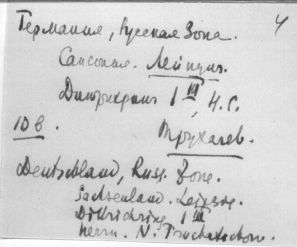 4
Германия, Русская Зона.
Саксония. Лейпциг.
Дитрихринг 1 III, Н. С.
10 в. Трухачев.
Deutschland, Russ. Zone.
Sachsenland. Leipzig.
Dittrichring 1 III
Herrn. N. Truchatschow.